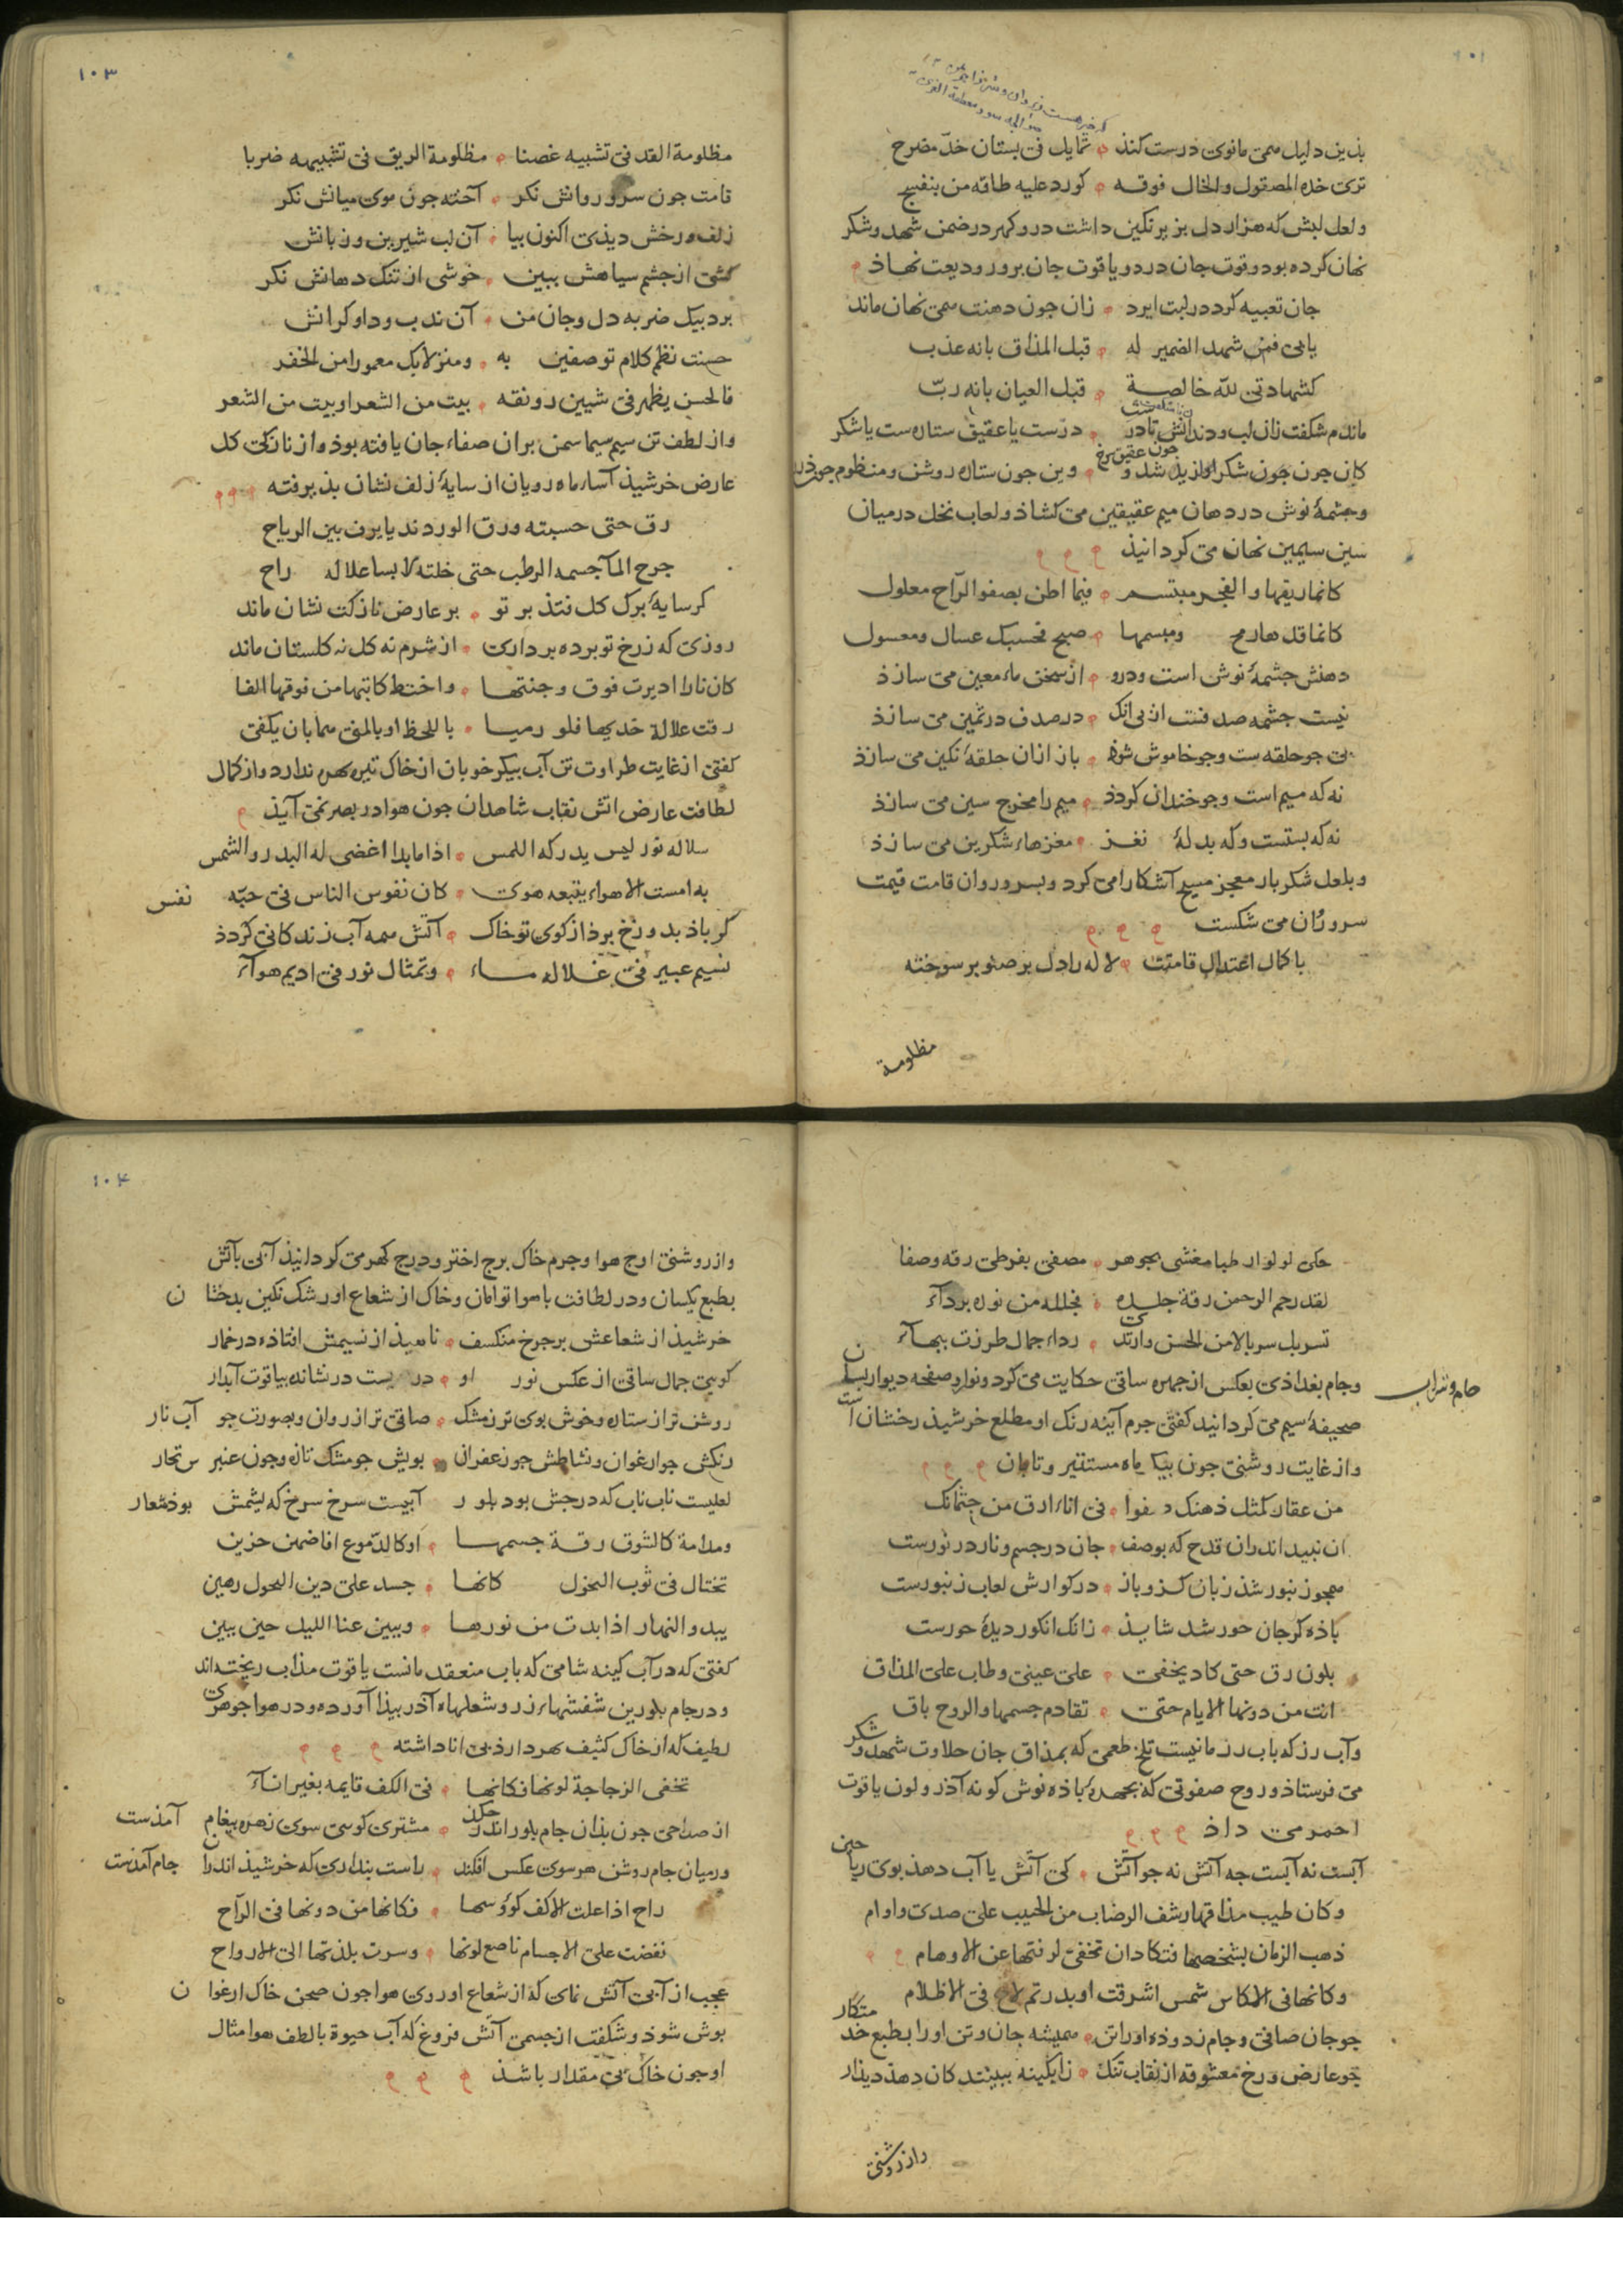 بذین دلیل همی مانوی درست کند ۰ شمایل فی بستان خدّ مضرح
تری خده المصقول والخال فوقه ۰ کورد علیه طاقه من بنفسج
ولعل لبش که هزار دل بزیر نکین داشت در و کهر در ضمن شهد و شکر
نهان کرده بود و قوت جان در دو یاقوت جان برور ودیعت نهاذ
جان تعبیه کرد در لبت ایزد ۰ زان جون دهنت همی نهان ماند
یابی فمن شهد الضمیر له ۰ قبل المذاق بانه عذب
کشهادتی لله خالصة ۰ قبل العیان بانه ربّ
ماندم شکفت زان لب و دندانش تا در ۰ درّست یا عقیق ستاره‌ست یا شکر
کان جون جون شکر لذیذ شد و جون عقیق سرخ ۰ وین جون ستاره روشن و منظوم جون درر
وجشمهٔ نوش در دهان میم عقیقین می کشاذ و لعاب نحل در میان
سین سیمین نهان می کردانیذ
کانما ریقها والفجر مبتسم ۰ فیما اظن بصفو الرّاح معلول
کانما قدها رمح ومبسمها ۰ صبح فحسبک عسال ومعسول
دهنش جشمهٔ نوش است و درو ۰ از سخن ماء معین می سازذ
نیست جشمه صدفست از بی انک ۰ در صدف در ثمین می سازذ
بی جو حلقه ست و جو خاموش شوذ ۰ باز ازان حلقهٔ نکین می سازذ
نه که میم است و جو خندان کردذ ۰ میم را مخرج سین می سازذ
نه که بستست و که بدلهٔ نغز ۰ مغزهاء شکرین می سازذ
و بلعل شکربار معجز مسیح آشکارا می کرد و بسرو روان قامت قیمت
سرو روان می شکست
با کمال اعتدال قامتت ۰ لاله را دل بر صنوبر سوخته
مظلومة
۱۰۳
مظلومة القد فی تشبیه غصنا ۰ مظلومة الریق فی تشبیهه ضربا
قامت جون سرو روانش نکر ۰ آخته جون موی میانش نکر
زلف و رخش دیذی اکنون بیا ۰ آن لب شیرین و زبانش
کشی از جشم سیاهش ببین ۰ خوشی از تنک دهانش نکر
برد بیک ضربه دل وجان من ۰ آن ندب و داو کرانش
حسنت نظم کلام توصفین به ۰ ومنزلا بک معمورا من الخفر
فالحسن یظهر فی شیین رونقه ۰ بیت من الشعر او بیت من الشعر
واز لطف تن سیم سیما سمن بران صفاء جان یافته بوذ واز نازکی کل
عارض خرشیذ آساء ماه رویان از سایهٔ زلف نشان بذیرفته
رق حتی حسبته ورق الورد ندیا یرف بین الریاح
جرح المآ جسمه الرطب حتی خلته لابسا علاله راح
کر سایهٔ برک کل فتذ بر تو ۰ بر عارض نازکت نشان ماند
روزی که ز رخ تو برده برداری ۰ از شرم نه کل نه کلستان ماند
کان نارا ادیرت فوق وجنتها ۰ واختط کاتبها من فوقها الفا
رقت علالة خدیها فلو رمیا ۰ باللحظ او بالمنی هما بان یکفی
کفتی از غایت طراوت تن آب بیکر خوبان از خاک تیره بهره ندارد واز کمال
لطافت عارض اتش نقاب شاهدان جون هوا در بصر نمی آیذ
سلاله نور لیس یدرکه اللمس ۰ اذا ما بدا اغضی له البدر والشمس
به امست الاهواء یتبعه هوی ۰ کان نفوس الناس فی حبّه نفس
کر باذ بدوزخ برذ از کوی تو خاک ۰ آتش همه آب زندکانی کردذ
نسیم عبیر فی غلاله ماء ۰ وتمثال نور فی ادیم هوآء
حکی لولوا رطبا مغشی بجوهر ۰ مصفی بفرطی رقه وصفا
لقد رحم الرحمن رقة جلده ۰ فجلله من نوره بردآء
تسربل سربالا من الحسن وارتدی ۰ رداء جمال طرزت ببهآء
جام و شراب
وجام بغداذی بعکس از جهره ساقی حکایت می کرد و نوار صفحه دیوار بسان
صحیفهٔ سیم می کردانید کفتی جرم آینه رنک او مطلع خرشیذ رخشان است
واز غایت روشنی جون بیکر ماه مستنیر و تابان
من عقار کمثل ذهنک صفوا ۰ فی اناء ارق من جثمانک
ان نبید اندران قدح که بوصف ۰ جان در جسم و نار در نورست
همجو زنبور شذ زبان کز و باز ۰ در کوارش لعاب زنبورست
باذه کر جان حور شد شایذ ۰ زانک انکور دیدهٔ حورست
بلون رق حتی کاد یخفی ۰ علی عینی وطاب علی المذاق
اتت من دونها الایام حتی ۰ تقادم جسمها والروح باق
و آب رز که باب رز مانیست تلخ طعمی که بمذاق جان حلاوت شهد و شکر
می فرستاذ و روح صفوتی که بجهرهٔ باذه نوش کونه آذر و لون یاقوت
احمر می داذ
آبست نه آبست جه آتش نه جو آتش ۰ کی آتش یا آب دهذ بوی ریاحین
وکان طیب مذاقها رشف الرضاب من الحبیب علی صدی واوام
ذهب الزمان بشخصها فتکاد ان تخفی لرقتها عن الاوهام
وکانها فی الکاس شمس اشرقت او بدر تم لاح فی الاظلام
جو جان صافی و جام زدوده اورا تن ۰ همیشه جان و تن اورا بطبع خدمتکار
جو عارض و رخ معشوقه از نقاب تنک ۰ ز ابکینه ببینند کان دهذ دیذار
واز روشنی
۱۰۴
واز روشنی اوج هوا و جرم خاک برج اختر و درج کهر می کردانیذ آبی باتش
بطبع یکسان و در لطافت با هوا توامان وخاک از شعاع او رشک نکین بدخشان
خرشیذ از شعاعش بر جرخ منکسف ۰ ناهیذ از نسیمش افتاده در خمار
کویی جمال ساقی از عکس نور او ۰ دریست در نشانده بیاقوت آبدار
روشن تر از ستاره و خوش بوی تر ز مشک ۰ صافی تر از روان و بصورت جو آب نار
رنکش جو ارغوان و نشاطش جو زعفران ۰ بویش جو مشک تازه و جون عنبر
لعلیست ناب ناب که درجش بود بلور آبیست سرخ سرخ که یشمش بوذ شعار
ومدامة کالشوق رقة جسمها ۰ او کالدّموع افاضهن حزین
تختال فی ثوب النحول کانها ۰ جسد علی دین النحول رهین
یبدو النهار اذا بدت من نورها ۰ ویبین عنا اللیل حین یبین
کفتی که در آب کینه شامی که باب منعقد مانست یاقوت مذاب ریخته‌اند
و در جام بلورین شفشهاء زر و شعلهاء آذر بیذا آورده و در هوا جوهری
لطیف که از خاک کثیف بهر دارذ بی انا داشته
تخفی الزجاجة لونها فکانها ۰ فی الکف قایمه بغیر انآء
از صراحی جون بذان جام بلور اندر جکذ ۰ مشتری کویی سوی زهره بیغام آمذست
ور میان جام روشن هر سوی عکس افکند ۰ راست بنداری که خرشیذ اندران جام آمذست
راح اذا علت الاکف کؤوسها ۰ فکانها من دونها فی الرّاح
نفضت علی الاجسام ناصع لونها ۰ وسرت بلذتها الی الارواح
عجب از آبی آتش نمای که از شعاع او روی هوا جون صحن خاک ارغوان
بوش شوذ و شکفت از جسمی آتش فروغ که آب حیوة با لطف هوا مثال
او جون خاک بی مقدار باشذ